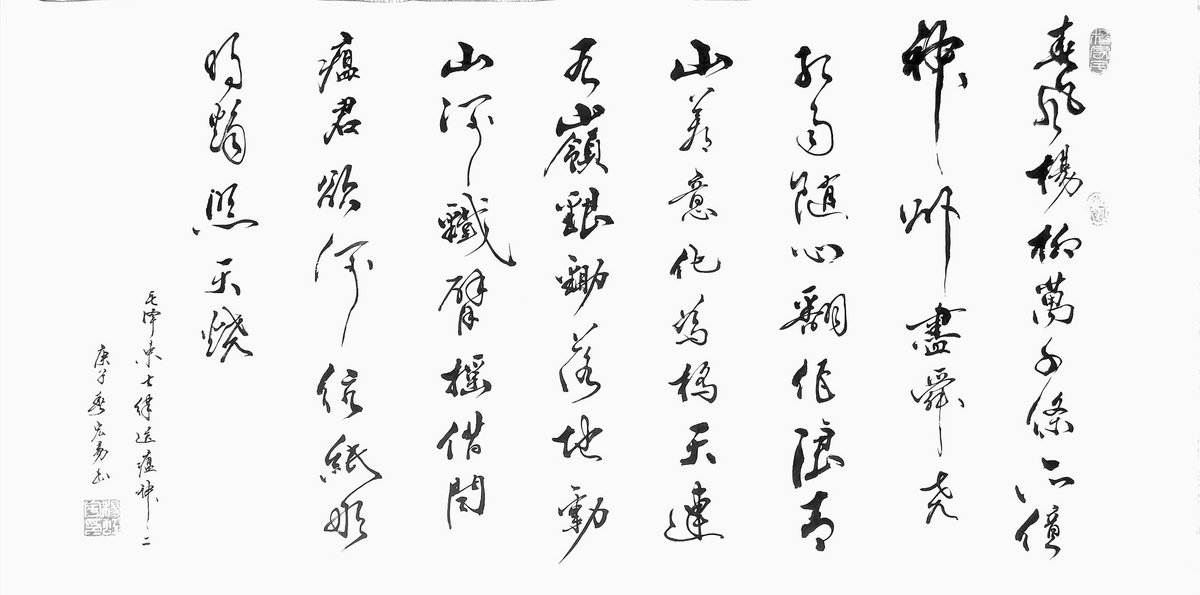 春風楊柳萬千條六億
神州盡舜堯
紅雨随心翻作浪青
山着意化為橋天連
五嶺銀鋤落地動
山河鐵臂摇借問
瘟君欲何往紙船
明燭照天燒
毛泽东七律送瘟神二
庚子春